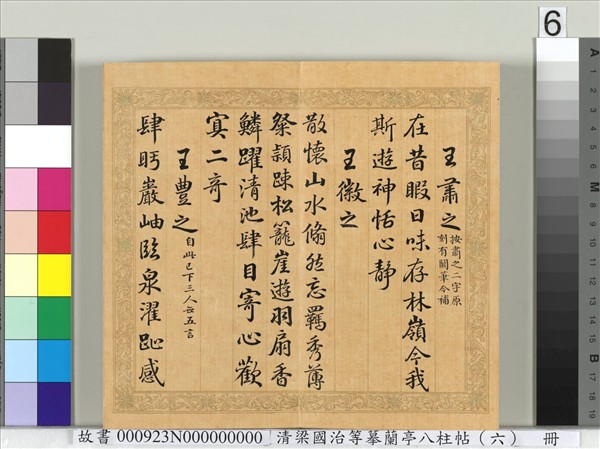 王肅之按肅之二字原
刻有闕筆今補
在昔暇日味存林嶺今我
斯遊神恬心靜
王徽之
散懷山水翛然忘羈秀薄
粲穎踈松籠崖遊羽扇香
鱗躍清池肆目寄心歡
寘二奇
王豐之自此已下三人無五言
肆眄巖岫臨泉濯趾感
6
A
1
2
3
4
5
6
M
8
9
10
11
12
13
14
15
B
17
18
19
故書 000923N000000000 清梁國治等摹蘭亭八柱帖（六） 冊